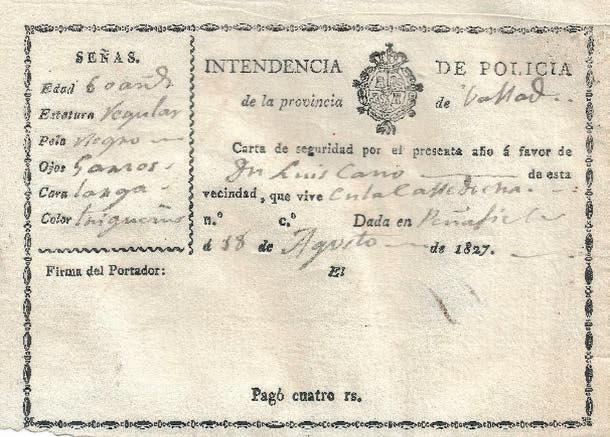 SEÑAS.
Edad 60 añs
Estatura Regular
Pelo Negro
Ojos Garzos
Cara larga
Color trigueño
Firma del Portador:
INTENDENCIA DE POLICIA
de la provincia de Vallad
Carta de seguridad por el presente año á favor de
Dn Luis Cano de esta
vecindad, que vive
n.º c.º Dada en Peñafiel
á 18 de Agosto de 1827.
El
Pagó cuatro rs.